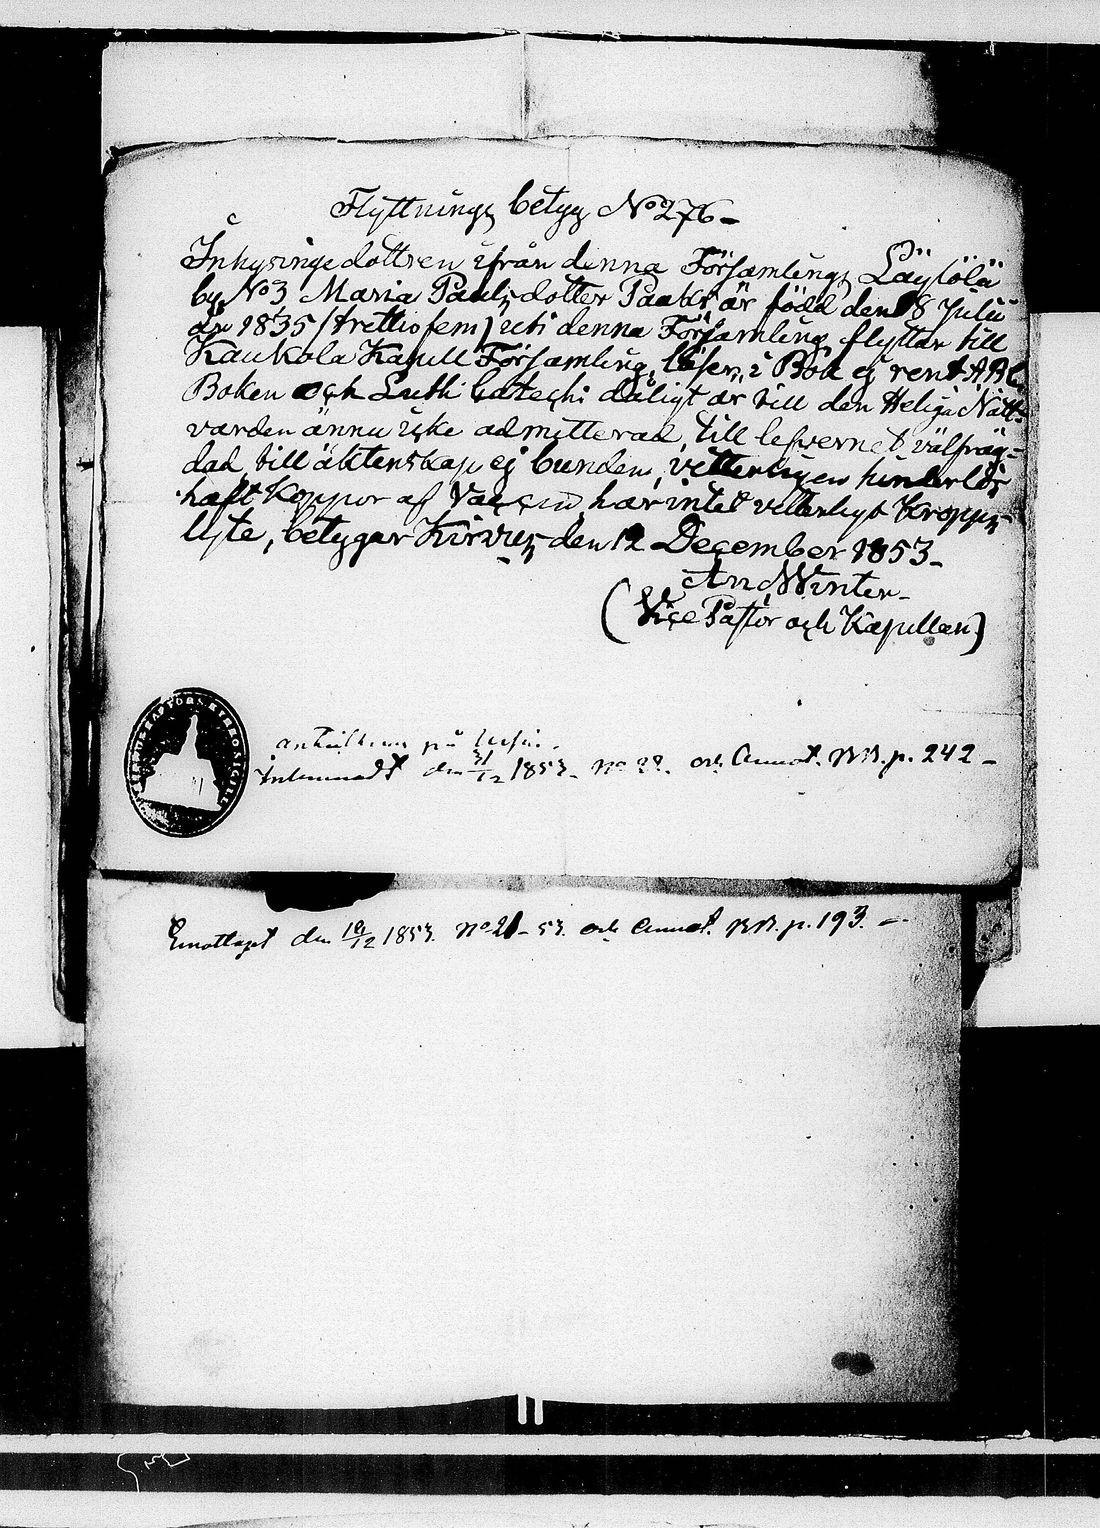 Flyttnings betyg No 276 –
Inhysinge dottren ifrån denna Församlings Läylölä
by No 3 Maria Paulsdotter är född den 8 Julii
år 1835 (trettiofem) uti denna Församling, flyttar till
Kaukola Kapell Församling, läser i Bok ej rent ABC
Boken och Luth: Cateches: dåligt är till den Heliga Natt-
varden ännu icke admitterad, till lefvernet välfräg-
dad, till äktenskap ej bunden, vetterligen hinderlös
haft Koppor af Vaccin, har intet vetterligt Kropps
lyte, betygar Kirvus den 12 December 1853 –
And Winter –
(Vice Pastor och Kapellan)
på
den 31/12 1853 – No 22. och Annot. KB. p. 242 –
Emottaget den 19/12 1853. No 21 – 53. och Annot. KB. p. 193. –